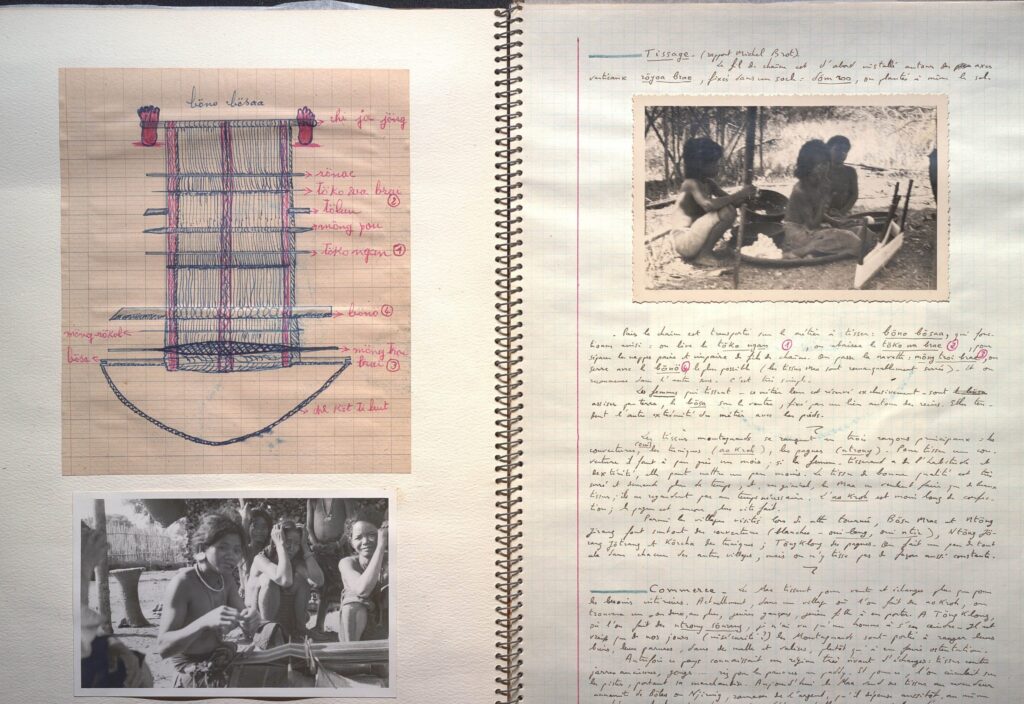 böno bösaa
che ja jöng
rönac
töko
②
tölun
möng you
töko ngan ①
bönö ④
möng rökot
bösa
möng troi
brai ③
Tissage. (rapport Michel Brot)
Le fil de chaîne est d'abord installé autour de axes
verticaux röyoa brae, fixés dans un socle: döm roo, ou plantés à même le sol.
Puis la chaîne est transportée sur le métier à tisser: böno bösaa, qui fonc-
tionne ainsi: on lève le töko ngan ①, on abaisse le töko ②, pour
séparer les nappes paire et impaire de fils de chaîne. On passe la navette: möng troi brae ③, on
serre avec le bönö ④ le plus possible (les tissus Maa sont remarquablement serrés). Et on
recommence dans l'autre sens. C'est très simple.
Les femmes qui tissent - ce métier leur est réservé exclusivement - sont
assises par terre, le bösa sur le ventre, fixé par un lien autour des reins. Elles ten-
dent l'autre extrémité du métier avec les pieds.
Les tissus montagnards se rangent en trois rayons principaux: les
couvertures, les tuniques (ao kroh), les pagnes (ntrony). Pour tisser une cou-
verture il faut à peu près un mois; si la femme tisserand a de l'habitude et
dextérité, elle peut mettre un peu moins. Le tissu de bonne qualité est très
serré et demande plus de temps, et, en général, les Maa ne veulent faire que de beaux
tissus; ils ne regardent pas au temps nécessaire. L'ao kroh est moins long de confec-
tion; le pagne est encore plus vite fait.
Parmi les villages visités lors de cette tournée, Bösu Mrae et Ntöng
Jirang font surtout des couvertures (blanches - oui bang, oui), Ntöng
et Körcha des tuniques; Töng Klong des pagnes. On fait un peu de tout
cela dans chacun des autres villages, mais on n'y tisse pas de façon aussi constante.
Commerce - Les Maa tissent pour vente et échanges plus que pour
les besoins intérieurs. Actuellement, dans un village où l'on fait des ao kroh, on
trouvera un ou deux, au plus, jeunes gens, jeunes filles à en porter. A Töng Klong,
où l'on fait des ntrony, je n'ai vu qu'un homme à s'en ceindre. Il est
vrai que de nos jours (insécurité?) les Montagnards sont portés à ranger leurs
biens, leurs parures, dans des malles et valises, plutôt qu'à en faire ostentation.
Autrefois ce pays connaissait un régime très vivant d'échanges: tissus contre
jarres anciennes, gongs. — riz pour les pauvres en paddy, et, pour ce, l'on circulait sur
les pistes, portant sa marchandise. Aujourd'hui le Maa vend ses tissus au vendeur
annamite de Blao ou Njiring, ramasse de l'argent, qu'il dépense aussitôt, au même